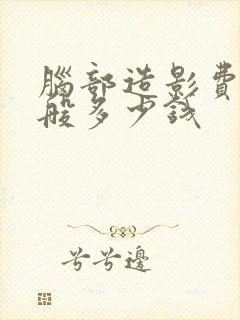 腦部造影費
般多少錢
兮兮邊